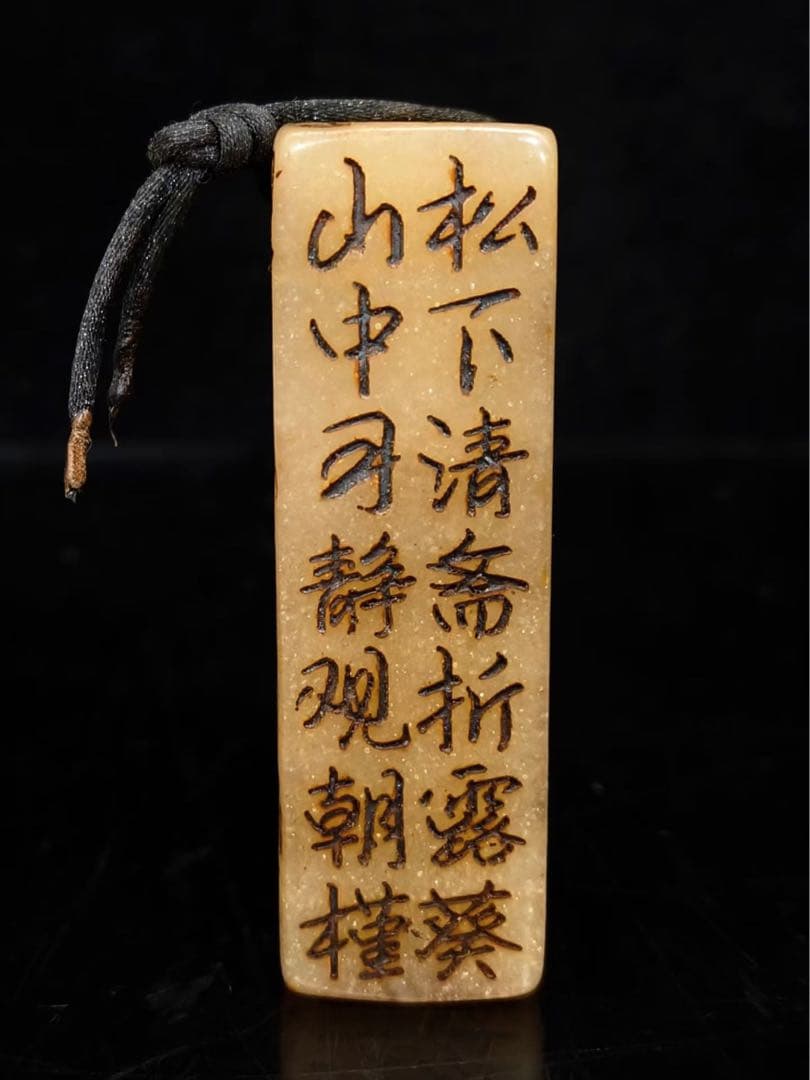 松下清斋折露葵
山中习静观朝槿